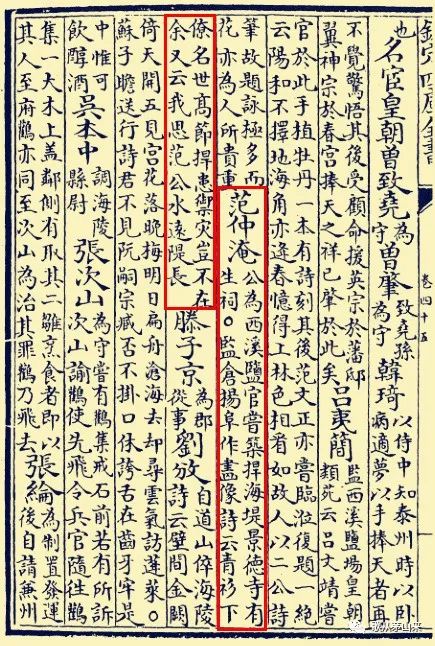 欽定四庫全書
卷四十五
也名宦皇朝曾致堯為守曾肇致堯孫為守韓琦以侍中知泰州時以卧病適夢以手捧天者再
不覺驚悟其後受顧命援英宗於藩邸
翼神宗於春宮捧天之祥已肇於此矣呂夷簡監西溪鹽場皇朝類苑云呂文靖嘗
官於此手植牡丹一本有詩刻其後范文正亦嘗臨涖復題一絶
云陽和不擇地海角亦逢春憶得上林色相看如故人以二公詩
筆故題詠極多而
花亦為人所貴重范仲淹公為西溪鹽官嘗築捍海堤景德寺有生祠○監倉揚阜作畫像詩云青衫下
僚名世髙節捍患禦灾豈不在
余又云我思范公水遠隄長滕子京為郡從事劉攽自道山倅海陵詩云壁間金闕
倚天開五見宮花落晚梅明日扁舟滄海去却尋雲氣訪蓬萊○
蘇子瞻送行詩君不見阮嗣宗臧否不掛口休誇舌在齒牙牢是
中惟可
飲醇酒吳本中調海陵縣尉張次山為守嘗有鸛集戒石前若有所訴次山諭鸛使先飛令兵官隨往鸛
集一大木上盖鄰側有取其二雛烹食者即以
其人至府鸛亦同至次山為治其罪鸛乃飛去張綸為制置發運後自請兼州